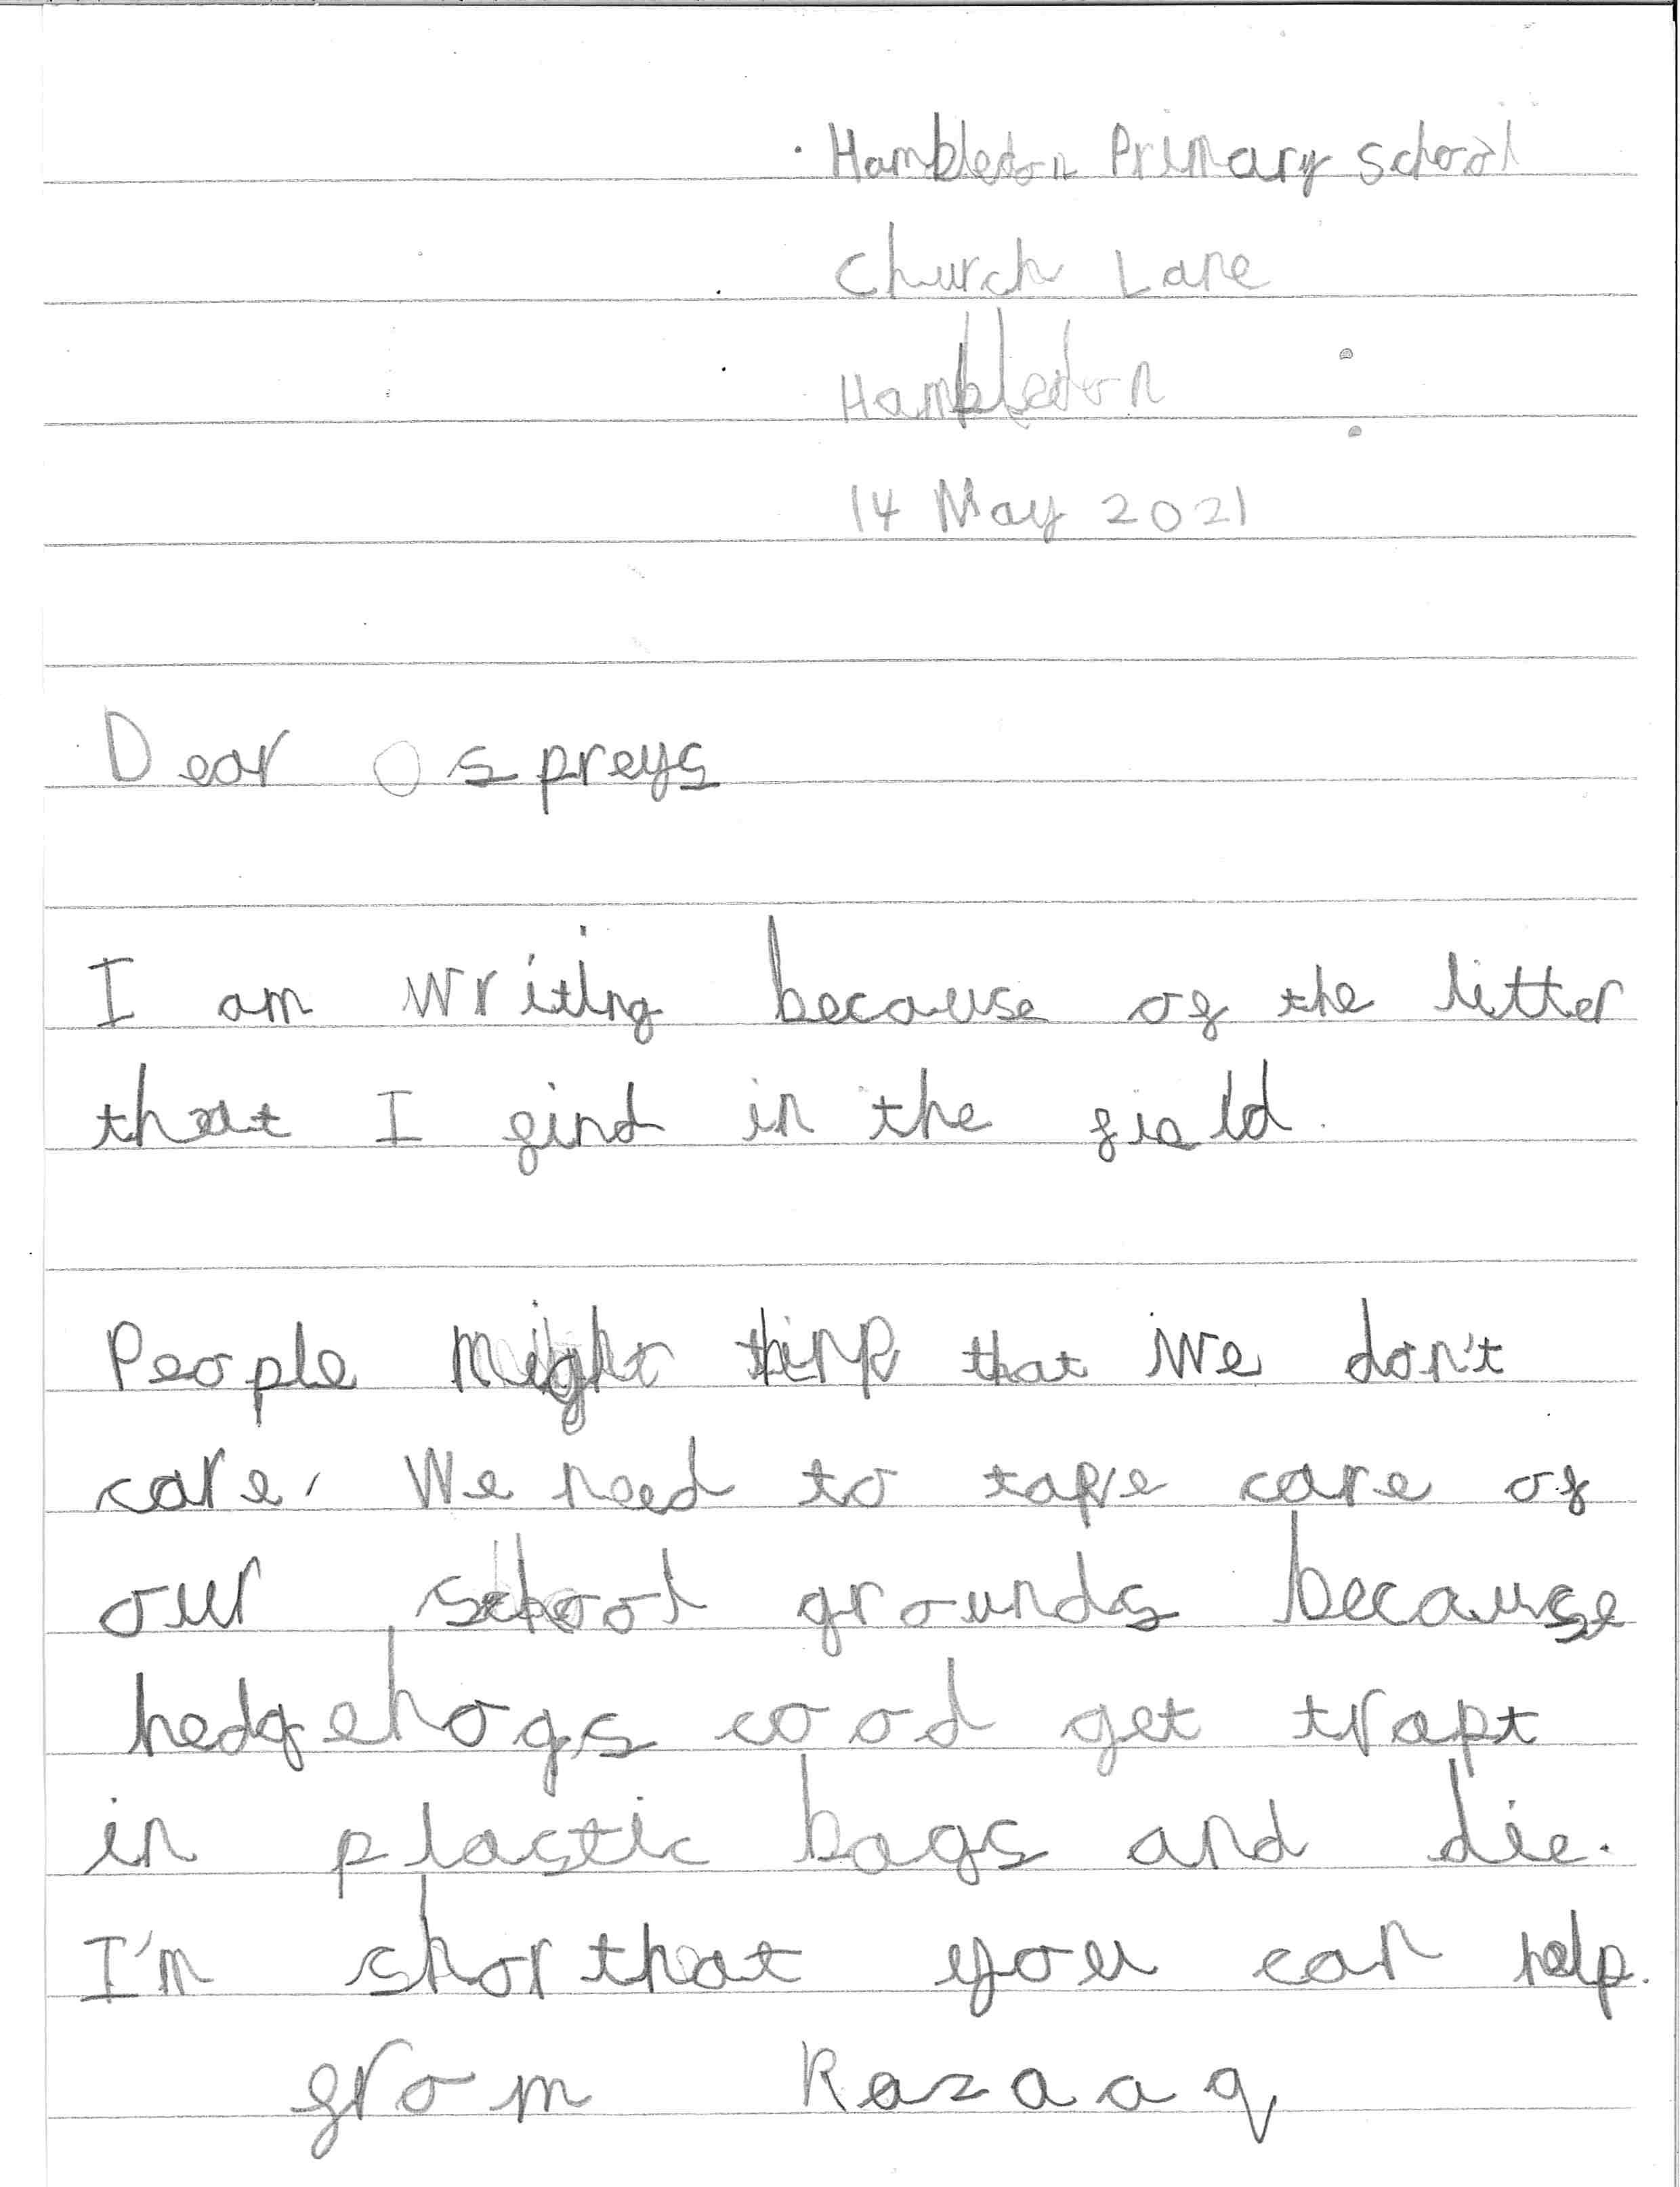 Hambledon Primary School
Church Lane
Hambledon
14 May 2021
Dear Ospreys
I am writing because of the litter
that I find in the field.
People might think that we don't
care. We need to take care of
our school grounds because
hedgehogs cood get trapt
in plastic bags and die.
I'm shor that you can help.
from Razaaq